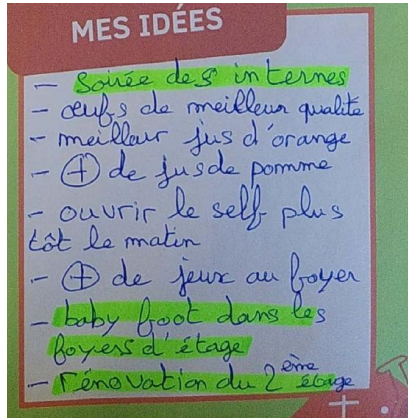 MES IDÉES
- Soirée des internes
- œufs de meilleur qualite
- meilleur jus d'orange
- + de jus de pomme
- ouvrir le self plus
tôt le matin
- + de jeux au foyer
- baby foot dans les
foyers d'étage
- rénovation du 2ème étage